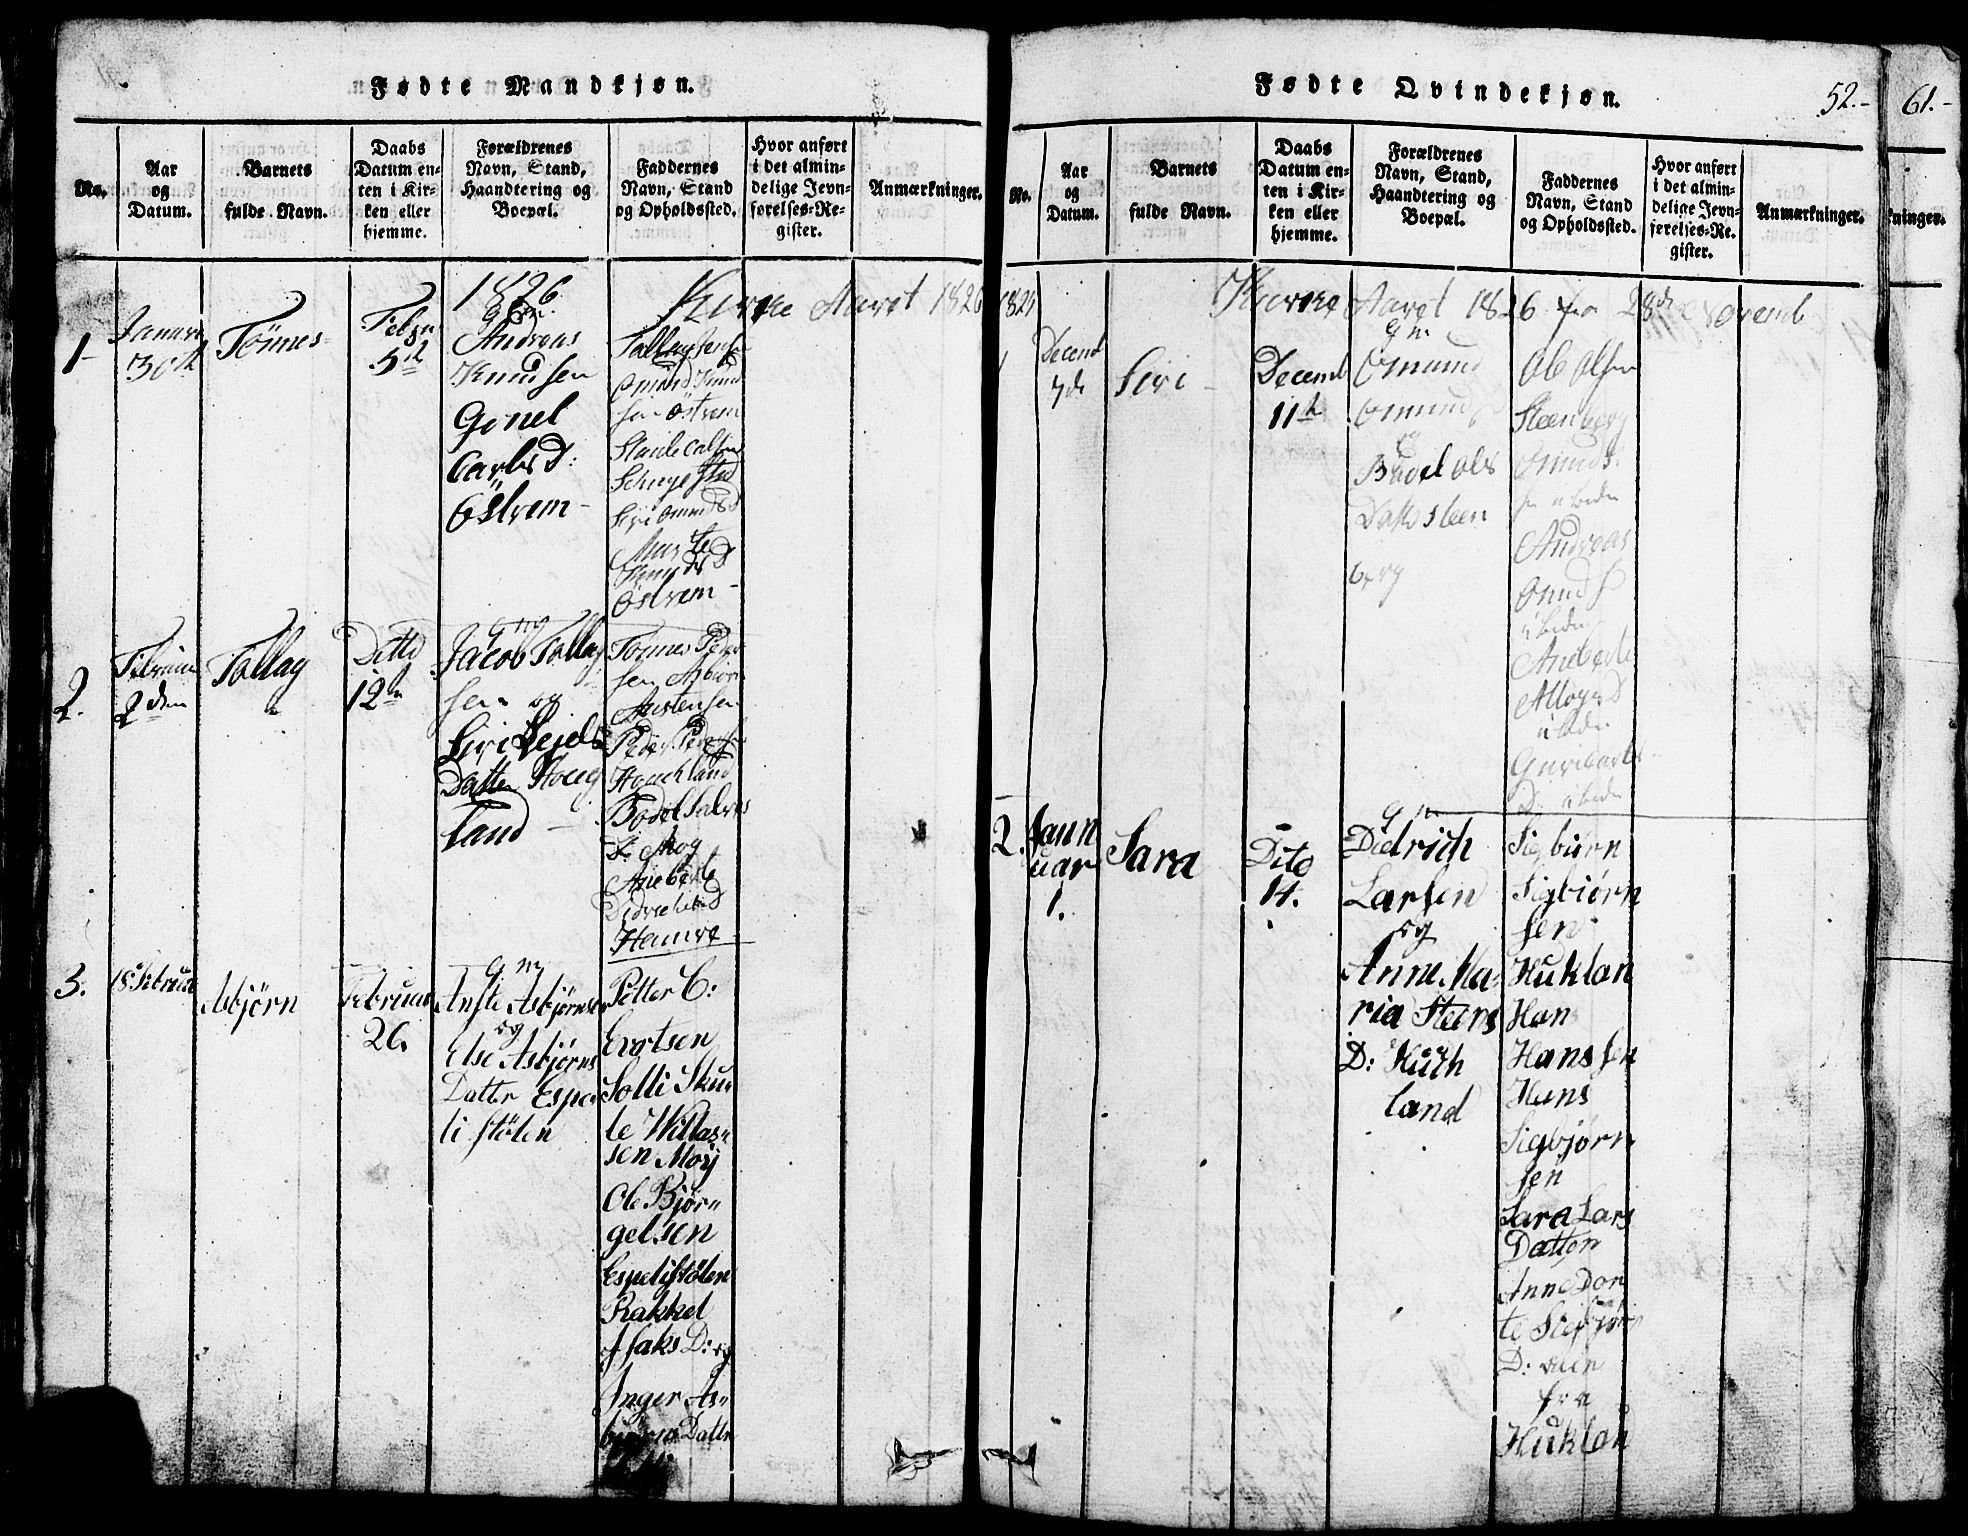 Fødte Mandkjøn.
No.
Aar
og
Datum.
Barnets
fulde Navn.
Daabs
Datum en-
ten i Kir-
ken eller
hjemme.
Forældrenes
Navn, Stand,
Haandtering og
Boepæl.
Faddernes
Navn, Stand
og Opholdssted.
Hvor anført
i det almin-
delige Jevn-
førelses-Re-
gister.
Anmærkninger.
1826
Kirke Aaret 1826
1
30th
Tönnes
Febr
5th
Gm
Andreas
Knudsen
Gönel
Carls D:
Östrem
Omund Knud
sen Östrem
Siri Omunds D
Marte
Knuds D
Östrem
2.
2den
Tollag
Ditto
12
Gm
Jacob Tollag
sen og
Siri Sejels
Datter Houg
land
Tönnes Peder
sen Asbiörn
Austensen
Peder Peders
Bodel Salves
D: Mog
Aneberte
D
3.
18 Februar
Asbjörn
Februar
26.
Gm
Anste Asbjörnsen
og
Else Asbjörns
Datter Espe
li stölen
Petter C:
Evertsen
Solli Sku
le Willas
sen Moij
Ole Bjør
gelsen
Espelistölen
Rakkel
Isaks D: og
Inger As
Datter
Fødte Qvindekjøn.
52.-
No.
Aar
og
Datum.
Barnets
fulde Navn.
Daabs
Datum en-
ten i Kir-
ken eller
hjemme.
Forældrenes
Navn, Stand,
Haandtering og
Boepæl.
Faddernes
Navn, Stand
og Opholdssted.
Hvor anført
i det almin-
delige Jevn-
førelses-Re-
gister.
Anmærkninger.
Kirke Aaret 1826 fra 28de Novemb
1
Decemb
7de
Siri
Decemb
11th
Gm
Omund
Omunds
og
Bodel Ols
Datter Steen
berg
Ole Olsen
Steenberg
Omunds
Andreas
Aneberte
2.
Jann
uar
1.
Sara
Dito
14.
Gm
Didrich
Larsen
og
Anne Ma
ria Steens
D: Huk
land
Sigbiörn
Sigbiörn
sen
Huklan
Han
Hanssen
Hans
Sigbjörn
sen
Sara Lars
Datter
Anne Dor
te Sigbjör
D:
fra
Huklan
61.-
kninger.